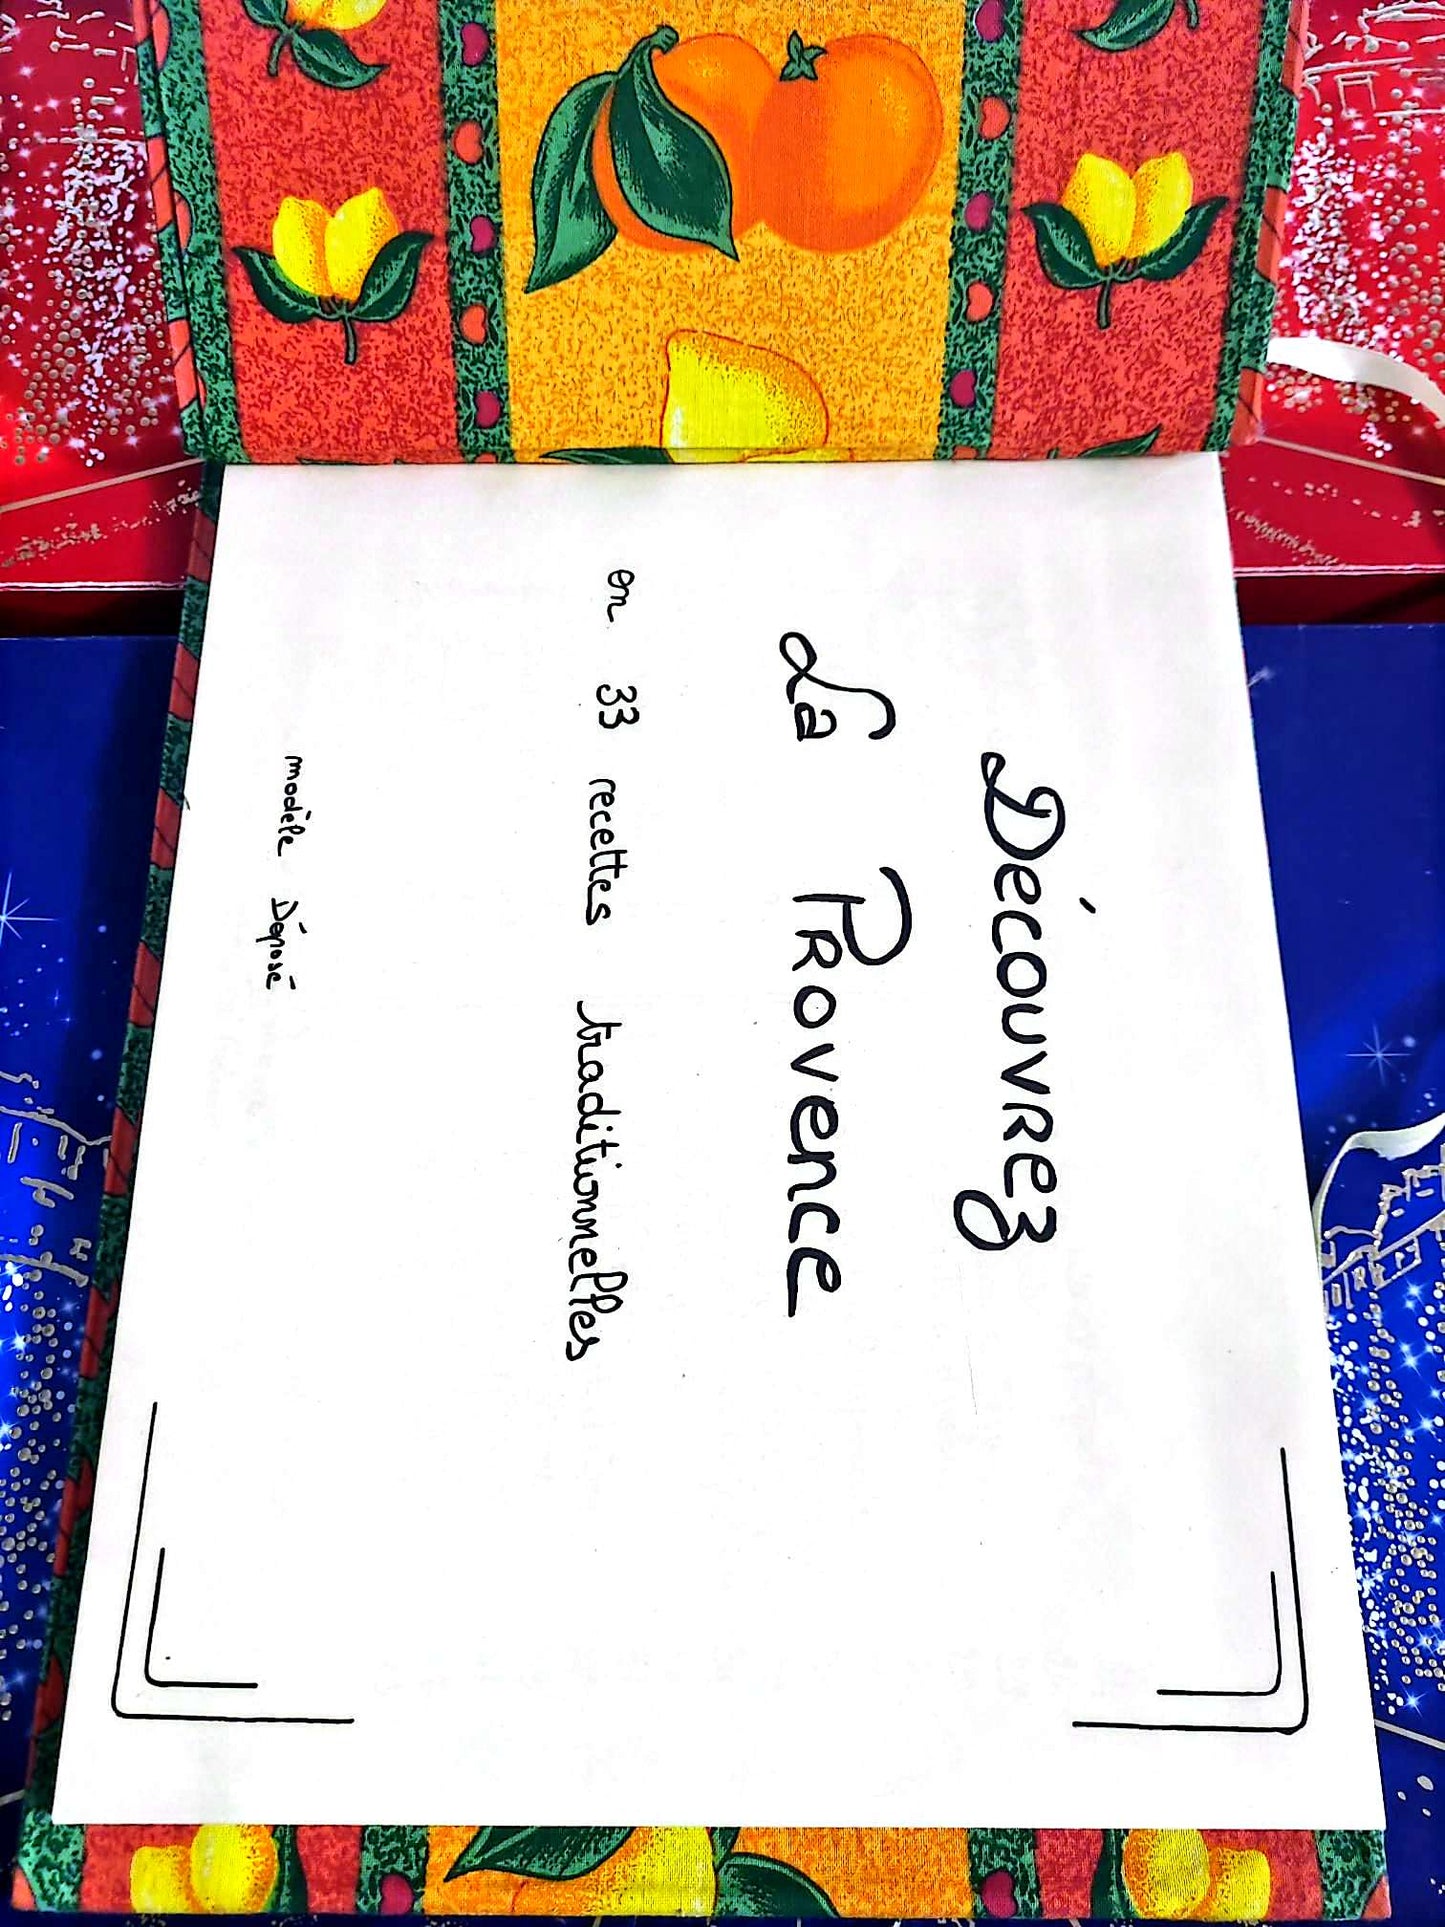 Découvrez
La Provence
en 33 recettes traditionnelles
modèle Déposé